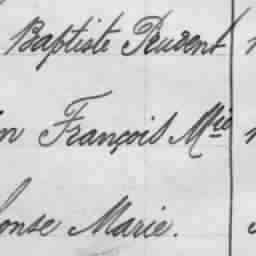 Baptiste Prudent
in François Mie
onse Marie.